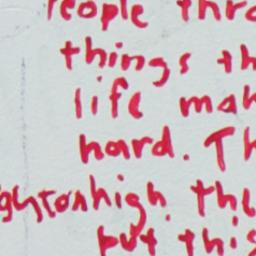 People thro
things th
life mak
hard. Th
high the
put this